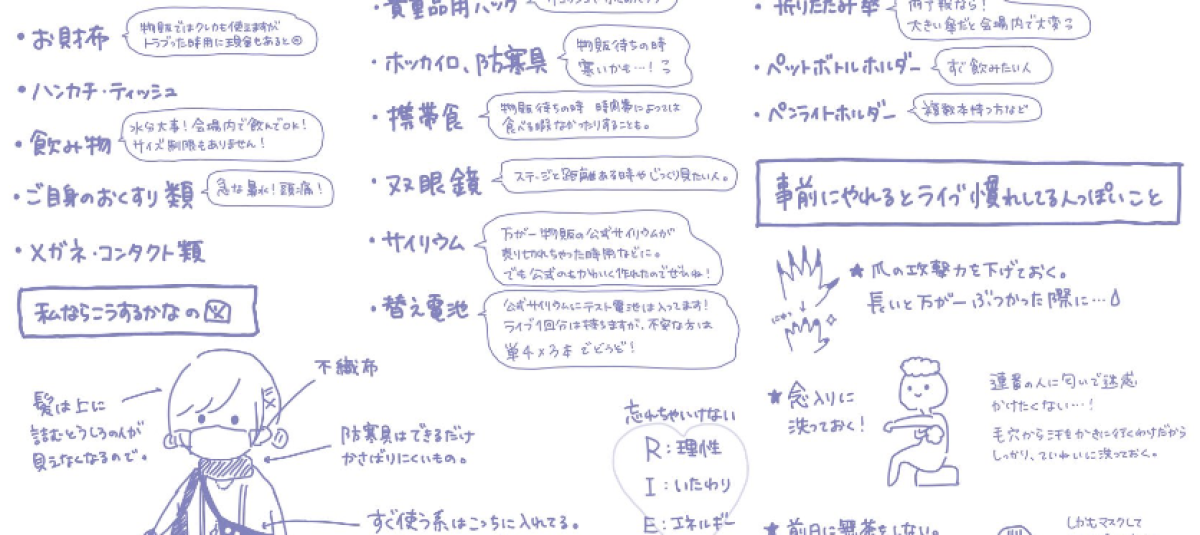 ・お財布
物販ではクレカも使えますが
トラブった時用に現金もあると◎
・ハンカチ・ティッシュ
・飲み物
水分大事！会場内で飲んでOK！
サイズ制限もありません！
・ご自身のおくすり類
急な鼻水！頭痛！
・メガネ・コンタクト類
私ならこうするかなの図
髪は上に
詰むとうしろの人が
見えなくなるので。
不織布
防寒具はできるだけ
かさばりにくいもの。
すぐ使う系はこっちに入れてる。
・貴重品用バッグ
・ホッカイロ、防寒具
物販待ちの時
寒いかも…！
・携帯食
物販待ちの時 時間帯によっては
食べる暇なかったりすることも。
・双眼鏡
ステージと距離ある時やじっくり見たい人。
・サイリウム
万が一物販の公式サイリウムが
売り切れちゃった時用などに。
でも公式のもかわいく作れたのでぜひね！
・替え電池
公式サイリウムにテスト電池は入ってます！
ライブ1回分は持ちますが、不安な方は
単4×3本でどうぞ！
忘れちゃいけない
R：理性
I：いたわり
E：エネルギー
・折りたたみ傘
雨予報なら！
大きい傘だと会場内で大変
・ペットボトルホルダー
すぐ飲みたい人
・ペンライトホルダー
複数本持つ方など
事前にやれるとライブ慣れしてる人っぽいこと
★爪の攻撃力を下げておく。
長いと万が一ぶつかった際に…
★念入りに
洗っておく！
連番の人に匂いで迷惑
かけたくない…！
毛穴から汗をかきに行くわけだから
しっかり、ていねいに洗っておく。
★前日に無茶をしない。
しかもマスクして